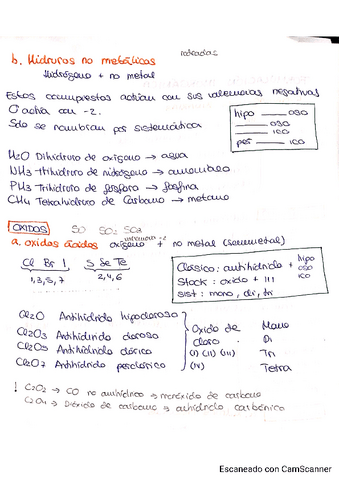 b. Hidruros no metálicos
Hidrógeno + no metal
Estos compuestos actúan con sus valencias negativas
O actúa con -2.
Solo se nombran por sistemática
hipo ___ oso
___ oso
___ ico
per ___ ico
H2O Dihidruro de oxígeno → agua
NH3 trihidruro de nitrógeno → amoniaco
PH3 Trihidruro de fósforo → fosfina
CH4 Tetrahidruro de Carbono → metano
OXIDOS SO SO2 SO3
valencia -2
a. oxidos ácidos oxígeno + no metal (semimetal)
Cl Br I S Se Te
1,3,5,7 2,4,6
Clásico: antihídrido + hipo oso ico
Stock: oxido + III
sist: mono, di, tri
Cl2O Antihídrido hipocloroso
Cl2O3 Antihídrido cloroso
Cl2O5 Antihídrido clórico
Cl2O7 Antihídrido perclórico
Oxido de Cloro
(I) (II) (III)
(IV)
Mono
Di
Tri
Tetra
! C2O2 → CO no anhídrico → monóxido de carbono
C2O4 → Dióxido de carbono → anhídrido carbónico
Escaneado con CamScanner